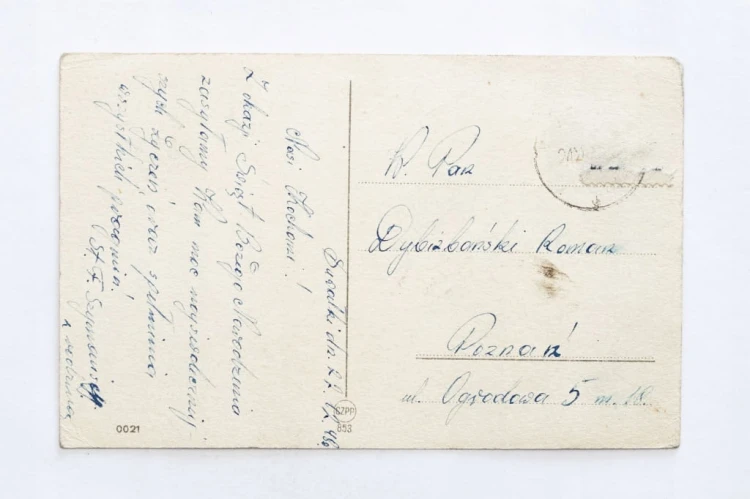 Suwałki dn. 27.12.46
Nasi Kochani!
Z okazji Świąt Bożego Narodzenia
zasyłamy Wam moc najserdeczniej-
szych życzeń oraz spełnienia
wszystkich
St. F.
z rodziną
0021
CZPP
853
W. Pan
Dybizbański Roman
Poznań
ul. Ogrodowa 5 m. 18.